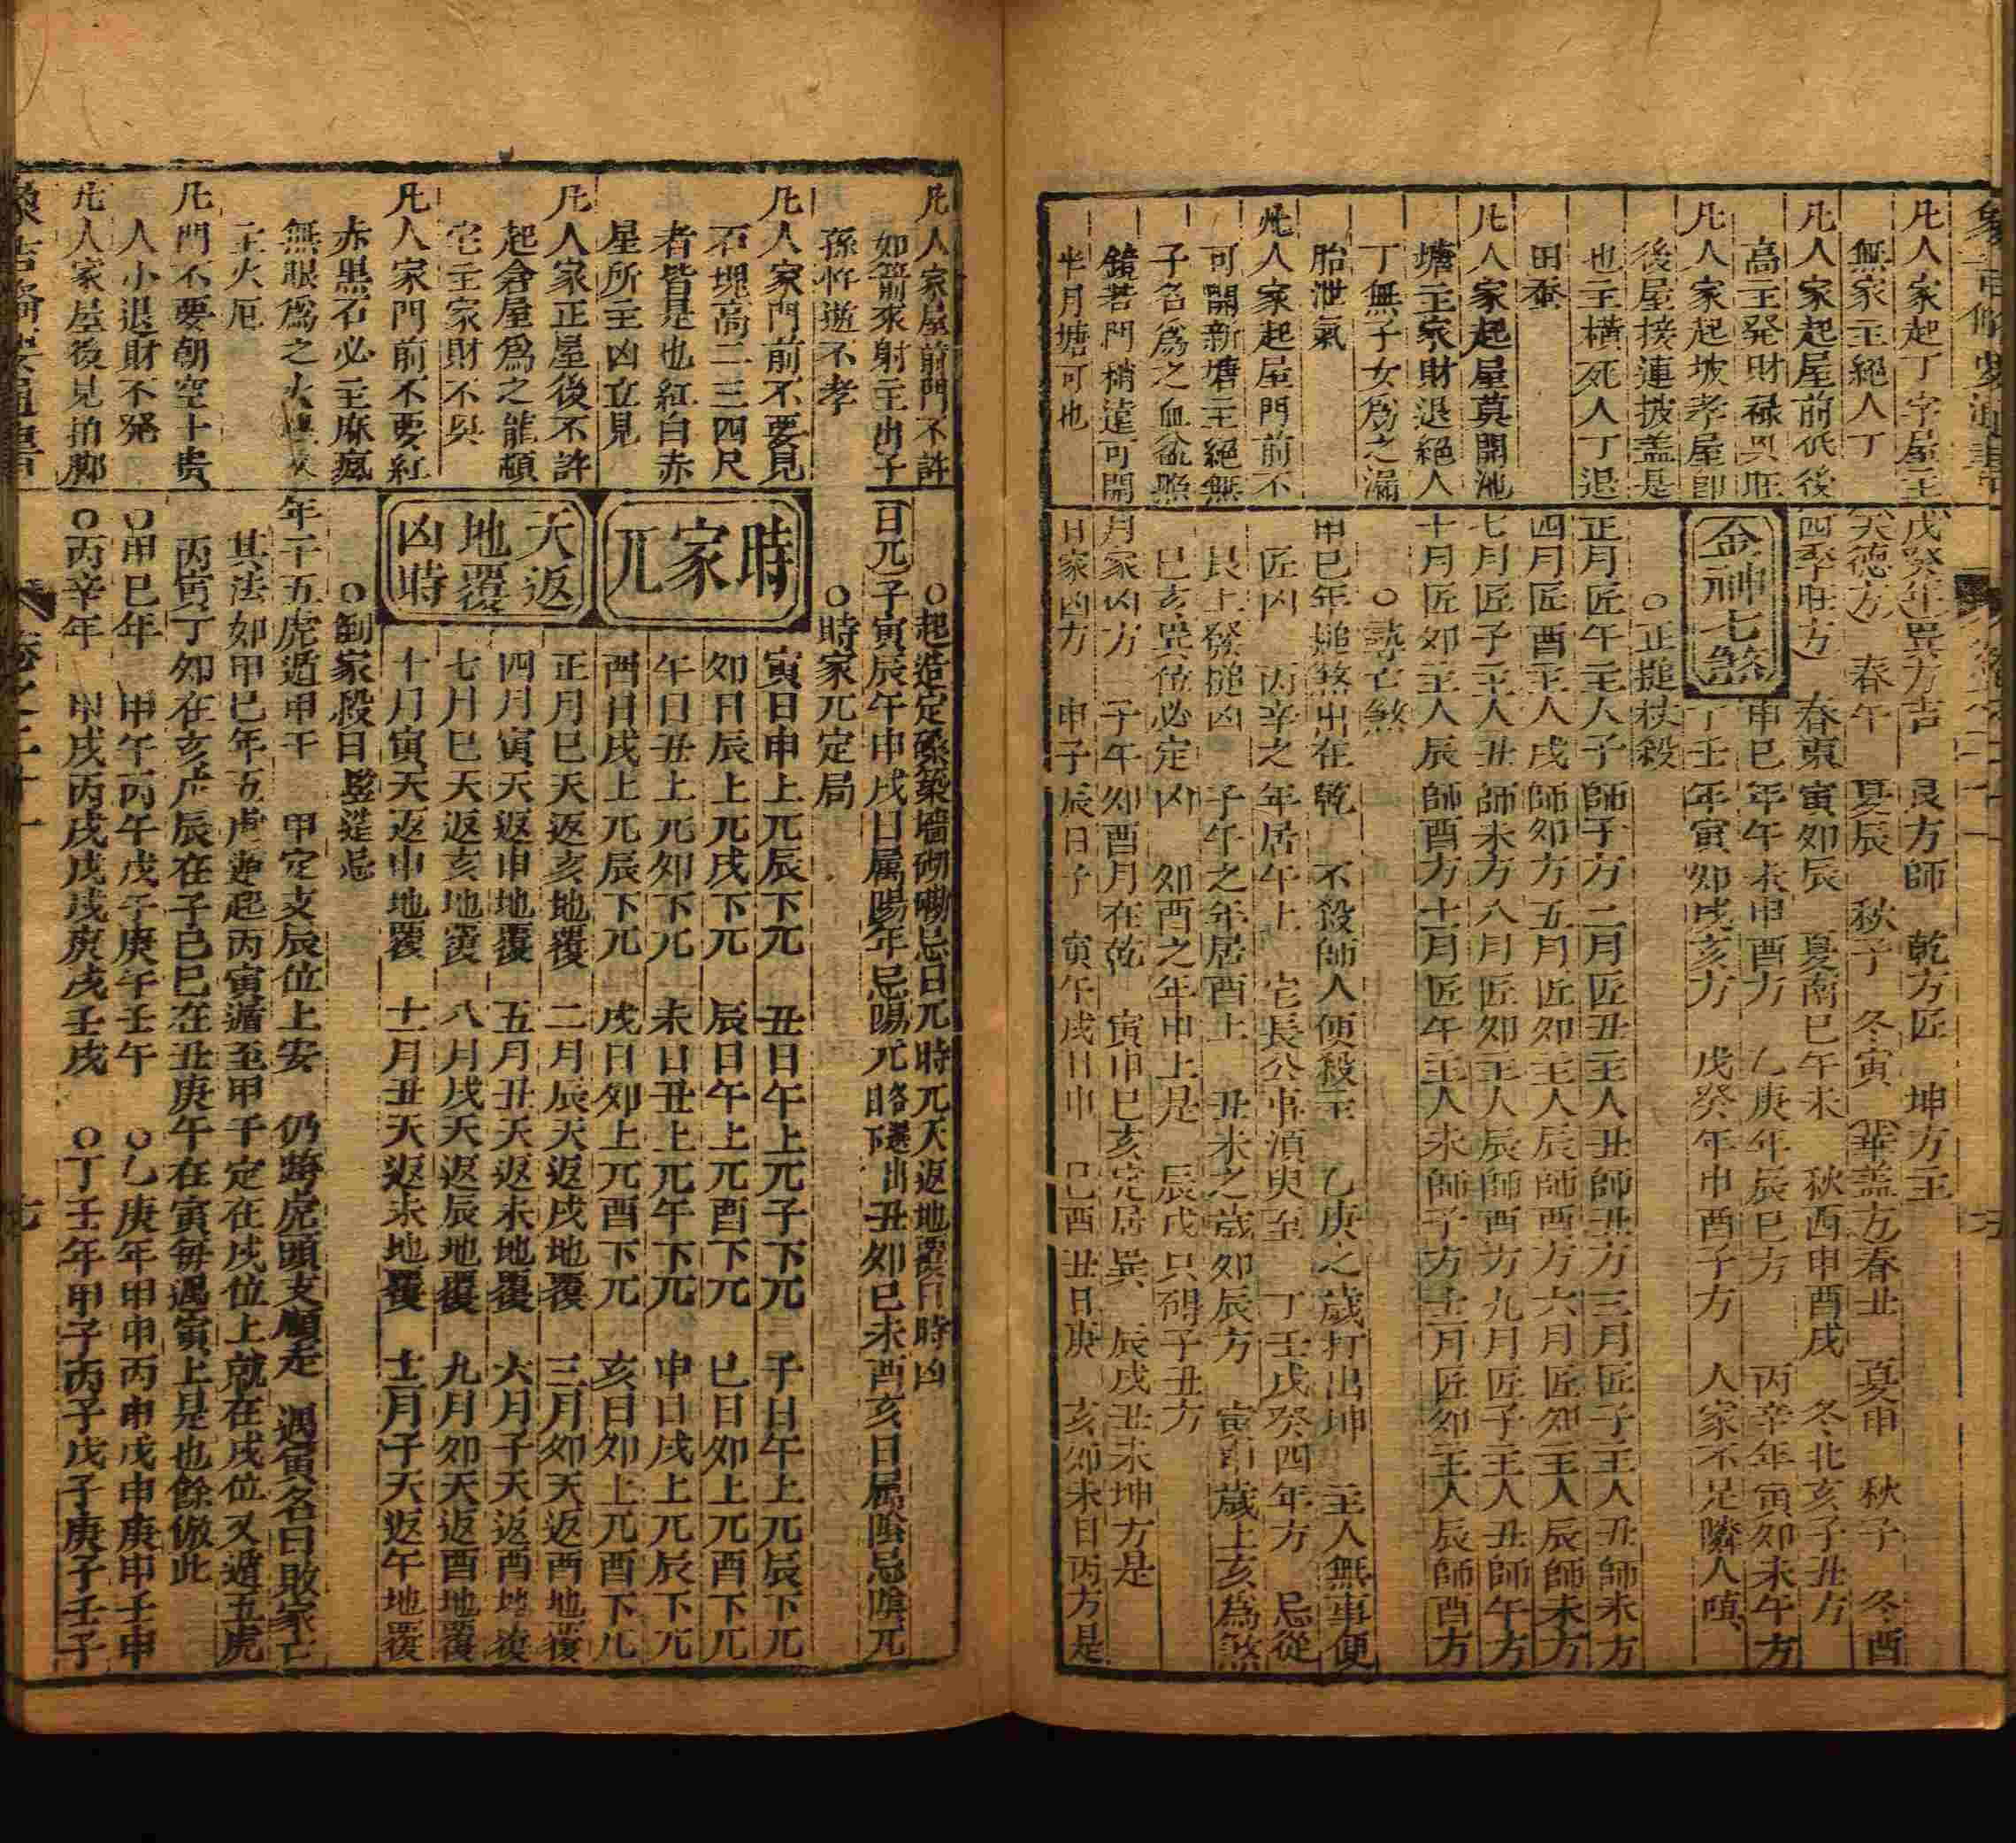 凡人家起丁字屋主
無家主絕人丁
凡人家起屋前低後
高主発財祿興旺
凡人家起披孝屋即
後屋接連披盖是
也主橫死人丁退
田蚕
凡人家起屋莫開池
塘主家財退絕人
丁無子女為之漏
胎泄氣
凡人家起屋門前不
可開新塘主絕無
子名為之血盆照
鏡若門稍遠可開
半月塘可也
戊癸年巽方吉 艮方師 乾方匠 坤方主
天德方 春午 夏辰 秋子 冬寅 華盖方春丑 夏申 秋子 冬酉
四季旺方 春東 寅卯辰 夏南巳午未 秋西申酉戌 冬北亥子丑方
金神七煞
甲巳年午未申酉方 乙庚年辰巳方 丙辛年寅卯未午方
丁壬年寅卯戌亥方 戊癸年申酉子方 人家不足隣人嗔
○正搥杖殺
正月匠午主人子師子方二月匠丑主人丑師丑方三月匠子主人丑師未方
四月匠酉主人戌師卯方五月匠卯主人辰師酉方六月匠卯主人辰師未方
七月匠子主人丑師未方八月匠卯主人辰師酉方九月匠子主人丑師午方
十月匠卯主人辰師酉方十一月匠午主人未師子方十二月匠卯主人辰師酉方
甲巳年搥煞出在乾 不殺師人便殺主 乙庚之歲打出坤 主人無事便
匠凶 丙辛之年居午上 宅長公事須臾至 丁壬戊癸四年方 忌從
艮上發搥凶 子午之年居酉上 丑未之歲卯辰方 寅申歲上亥為煞
巳亥巽位必定凶 卯酉之年申上是 辰戌只碍子丑方
月家凶方 子午卯酉月在乾 寅申巳亥定居巽 辰戌丑未坤方是
日家凶方 申子辰日子 寅午戌日申 巳酉丑日庚 亥卯未日丙方是
凡人家屋前門不許
如箭來射主出子
孫忤逆不孝
凡人家門前不要見
石塊高二三四尺
者皆是也紅白赤
星所主凶立見
凡人家正屋後不許
起倉屋為之龍頓
宅主家財不興
凡人家門前不要紅
赤黑石必主麻瘋
無眼為之火
主火厄
凡門不要朝空十貴
人小退財不発
凡人家屋後見拍脚
○起造定磉築墻砌磡忌日兀時兀天返地覆日時凶
日兀 子寅辰午申戌日属陽年忌陽兀略選出丑卯巳未酉亥日属陰忌陰兀
○時家兀定局
時家兀
寅日申上兀辰下兀 丑日午上兀子下兀 子日午上兀辰下兀
卯日辰上兀戌下兀 辰日午上兀酉下兀 巳日卯上兀酉下兀
午日丑上兀卯下兀 未日丑上兀午下兀 申日戌上兀辰下兀
酉日戌上兀辰下兀 戌日卯上兀酉下兀 亥日卯上兀酉下兀
天返地覆凶時
正月巳天返亥地覆 二月辰天返戌地覆 三月卯天返酉地覆
四月寅天返申地覆 五月丑天返未地覆 六月子天返酉地覆
七月巳天返亥地覆 八月戌天返辰地覆 九月卯天返酉地覆
十月寅天返申地覆 十一月丑天返未地覆 十二月子天返午地覆
○倒家殺日 竪造忌
年干五虎遁甲干 甲定支辰位上安 仍將虎頭支順走 遇寅名曰敗家亡
其法如甲巳年五虎遁起丙寅遁至甲干定在戌位上就在戌位又遁五虎
丙寅丁卯在亥戊辰在子己巳在丑庚午在寅每遇寅上是也餘倣此
○甲巳年 甲午丙午戊子庚午壬午 ○乙庚年甲申丙申戊申庚申壬申
○丙辛年 甲戌丙戌戊戌庚戌壬戌 ○丁壬年甲子丙子戊子庚子壬子